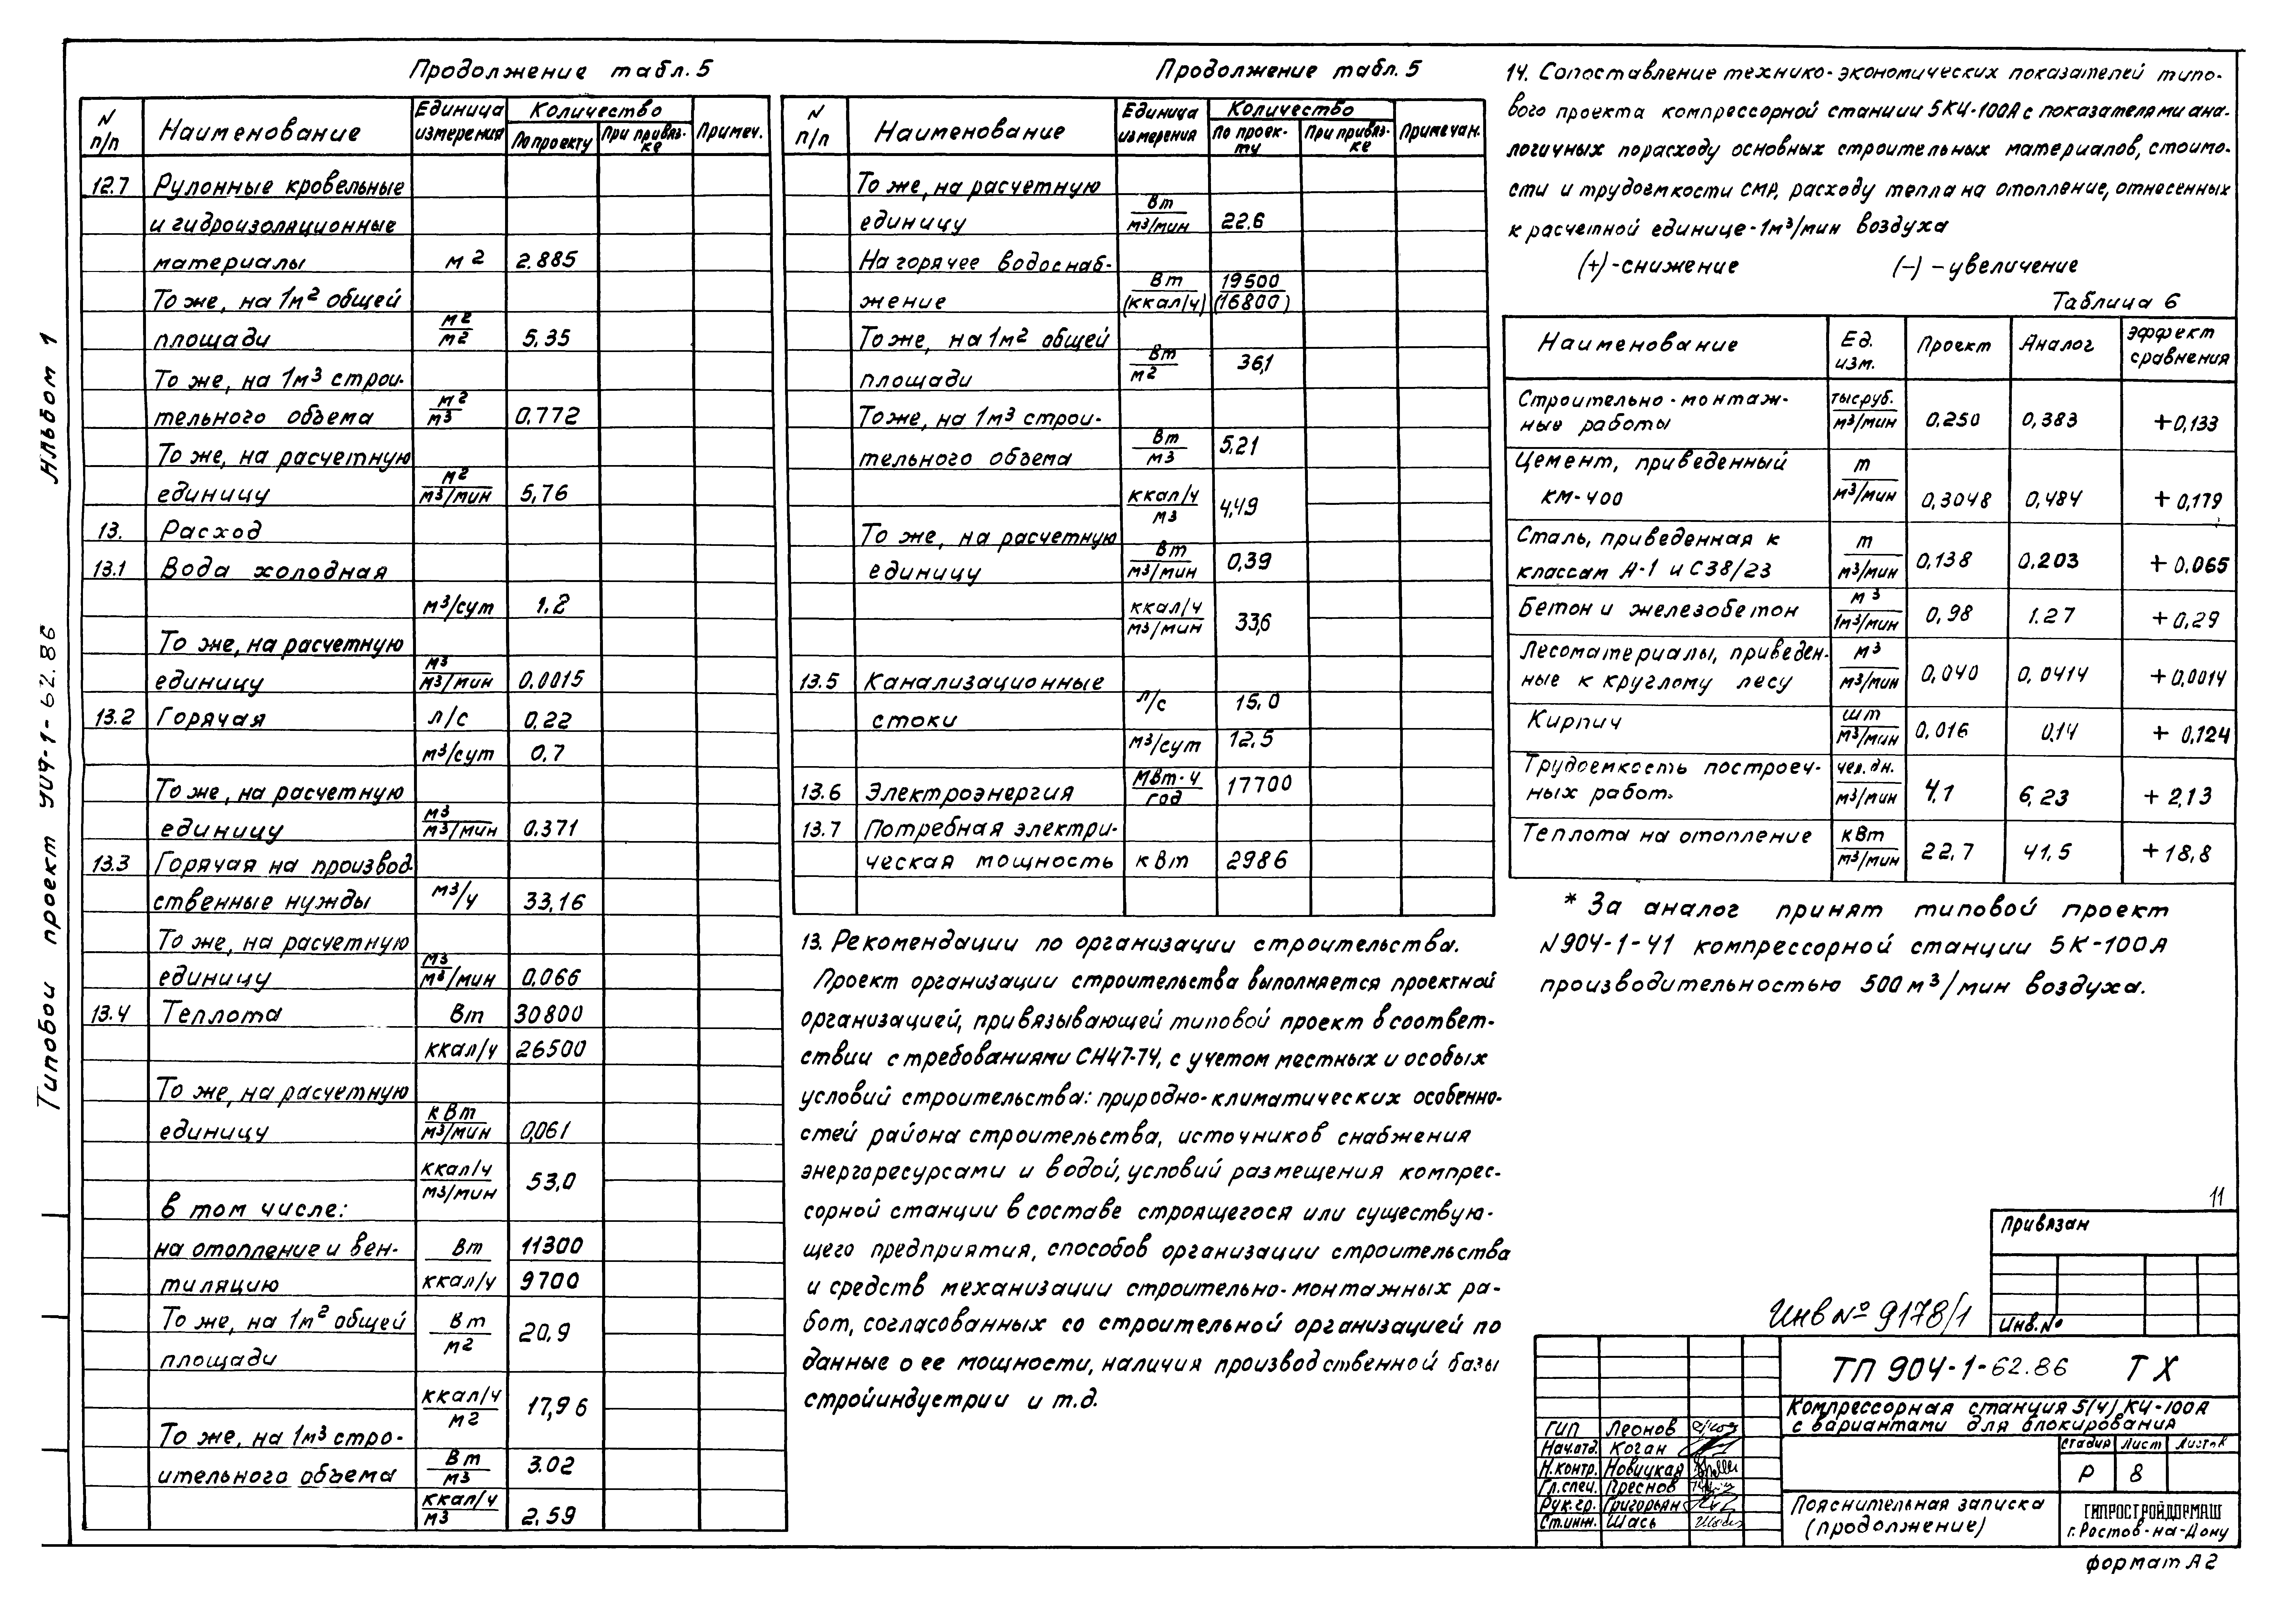 Альбом 1
Типовой проект 904-1-62.86
Продолжение табл. 5
N п/п Наименование Единица измерения Количество Примеч.
По проекту При привяз-ке
12.7 Рулонные кровельные
и гидроизоляционные
материалы м2 2.885
То же, на 1м2 общей
площади м2/м2 5.35
То же, на 1м3 строи-
тельного объема м2/м3 0.772
То же, на расчетную
единицу м2/м3/мин 5,76
13. Расход
13.1 Вода холодная
м3/сут 1.2
То же, на расчетную
единицу м3/м3/мин 0.0015
13.2 Горячая л/с 0.22
м3/сут 0.7
То же, на расчетную
единицу м3/м3/мин 0.371
13.3 Горячая на производ-
ственные нужды м3/ч 33,16
То же, на расчетную
единицу м3/м3/мин 0.066
13.4 Теплота Вт 30800
ккал/ч 26500
То же, на расчетную
единицу кВт/м3/мин 0,061
ккал/ч/м3/мин 53,0
в том числе:
на отопление и вен- Вт 11300
тиляцию ккал/ч 9700
То же, на 1м2 общей Вт/м2 20,9
площади
ккал/ч/м2 17,96
То же, на 1м3 стро-
ительного объема Вт/м3 3.02
ккал/ч/м3 2.59
Продолжение табл. 5
N п/п Наименование Единица измерения Количество Примечан.
По проек-ту При привяз-ке
То же, на расчетную
единицу Вт/м3/мин 22.6
На горячее водоснаб-
жение Вт/(ккал/ч) 19500/(16800)
То же, на 1м2 общей
площади Вт/м2 36,1
То же, на 1м3 строи-
тельного объема Вт/м3 5,21
ккал/ч/м3 4,49
То же, на расчетную
единицу Вт/м3/мин 0,39
ккал/ч/м3/мин 33,6
13.5 Канализационные
стоки л/с 15,0
м3/сут 12.5
13.6 Электроэнергия МВт.ч/год 17700
13.7 Потребная электри-
ческая мощность кВт 2986
13. Рекомендации по организации строительства.
Проект организации строительства выполняется проектной
организацией, привязывающей типовой проект в соответ-
ствии с требованиями СН47-74, с учетом местных и особых
условий строительства: природно-климатических особенно-
стей района строительства, источников снабжения
энергоресурсами и водой, условий размещения компрес-
сорной станции в составе строящегося или существую-
щего предприятия, способов организации строительства
и средств механизации строительно-монтажных ра-
бот, согласованных со строительной организацией по
данные о ее мощности, наличия производственной базы
стройиндустрии и т.д.
14. Сопоставление технико-экономических показателей типо-
вого проекта компрессорной станции 5КЧ-100А с показателями ана-
логичных по расходу основных строительных материалов, стоимо-
сти и трудоемкости СМР, расходу тепла на отопление, отнесенных
к расчетной единице-1м3/мин воздуха
(+)-снижение (-)-увеличение
Таблица 6
Наименование Ед. изм. Проект Аналог Эффект сравнения
Строительно-монтаж-
ные работы тыс.руб./м3/мин 0.250 0,383 +0,133
Цемент, приведенный
КМ-400 т/м3/мин 0,3048 0,484 +0,179
Сталь, приведенная к
классам А-1 и С38/23 т/м3/мин 0,138 0.203 +0.065
Бетон и железобетон м3/1м3/мин 0,98 1.27 +0,29
Лесоматериалы, приведен-
ные к круглому лесу м3/м3/мин 0,040 0,0414 +0,0014
Кирпич шт/м3/мин 0,016 0,14 + 0,124
Трудоемкость построеч-
ных работ. чел.дн./м3/мин 4,1 6,23 + 2,13
Теплота на отопление кВт/м3/мин 22,7 41,5 +18,8
* За аналог принят типовой проект
N904-1-41 компрессорной станции 5К-100А
производительностью 500м3/мин воздуха.
11
Привязан
Инв.№
Инв № 9178/1
ТП 904-1-62.86 ТХ
Компрессорная станция 5(4)КЧ-100А
с вариантами для блокирования
Стадия Лист Листов
Р 8
ГИП Леонов
Нач.отд. Коган
Н.контр. Новицкая
Гл.спец. Преснов
Рук.гр. Григорьян
Ст.инж. Шась
Пояснительная записка
(продолжение)
ГИПРОСТРОЙДОРМАШ
г.Ростов-на-Дону
формат А2